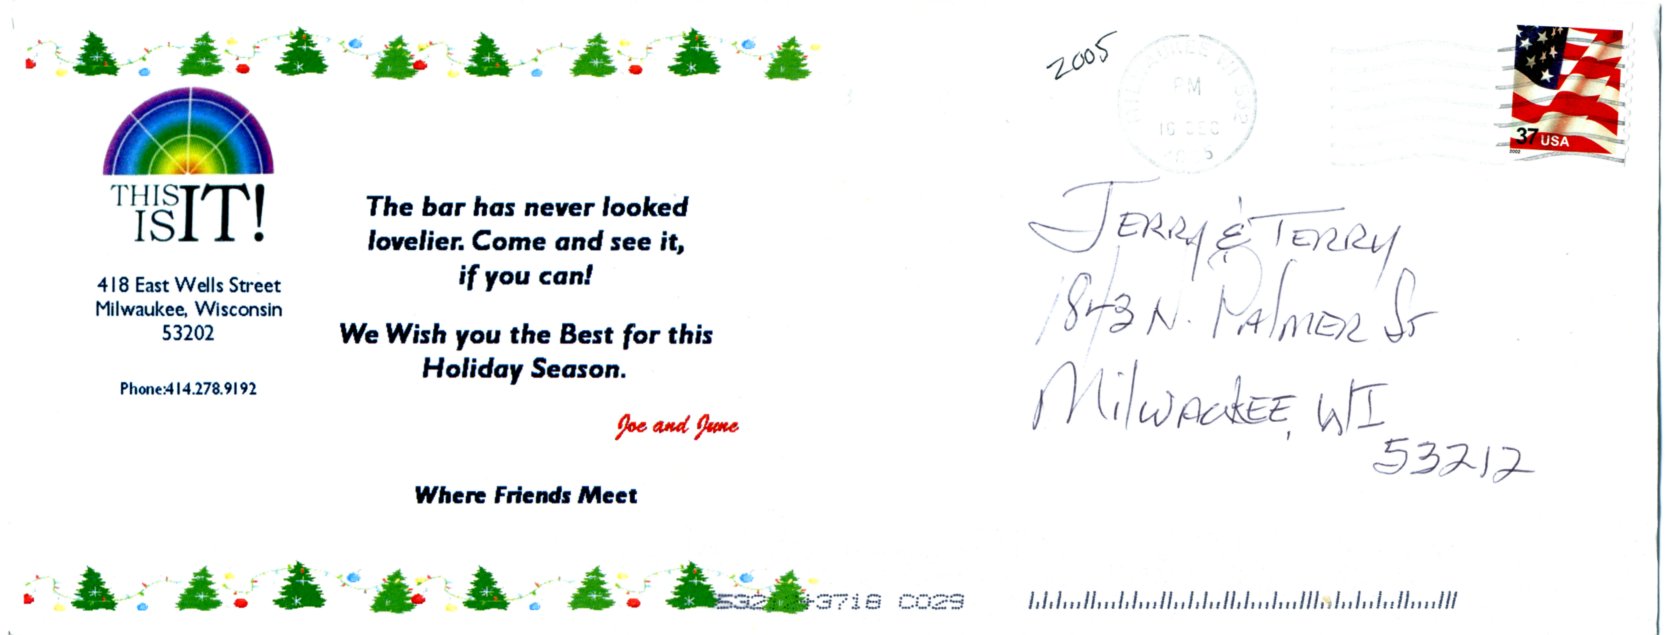 THIS
IS IT!
418 East Wells Street
Milwaukee, Wisconsin
53202
Phone:414.278.9192
The bar has never looked
lovelier. Come and see it,
if you can!
We Wish you the Best for this
Holiday Season.
Joe and June
Where Friends Meet
2005
PM
37 USA
JERRY & TERRY
1843 N. PALMER St
MILWAUKEE, WI
53212
3718 C029